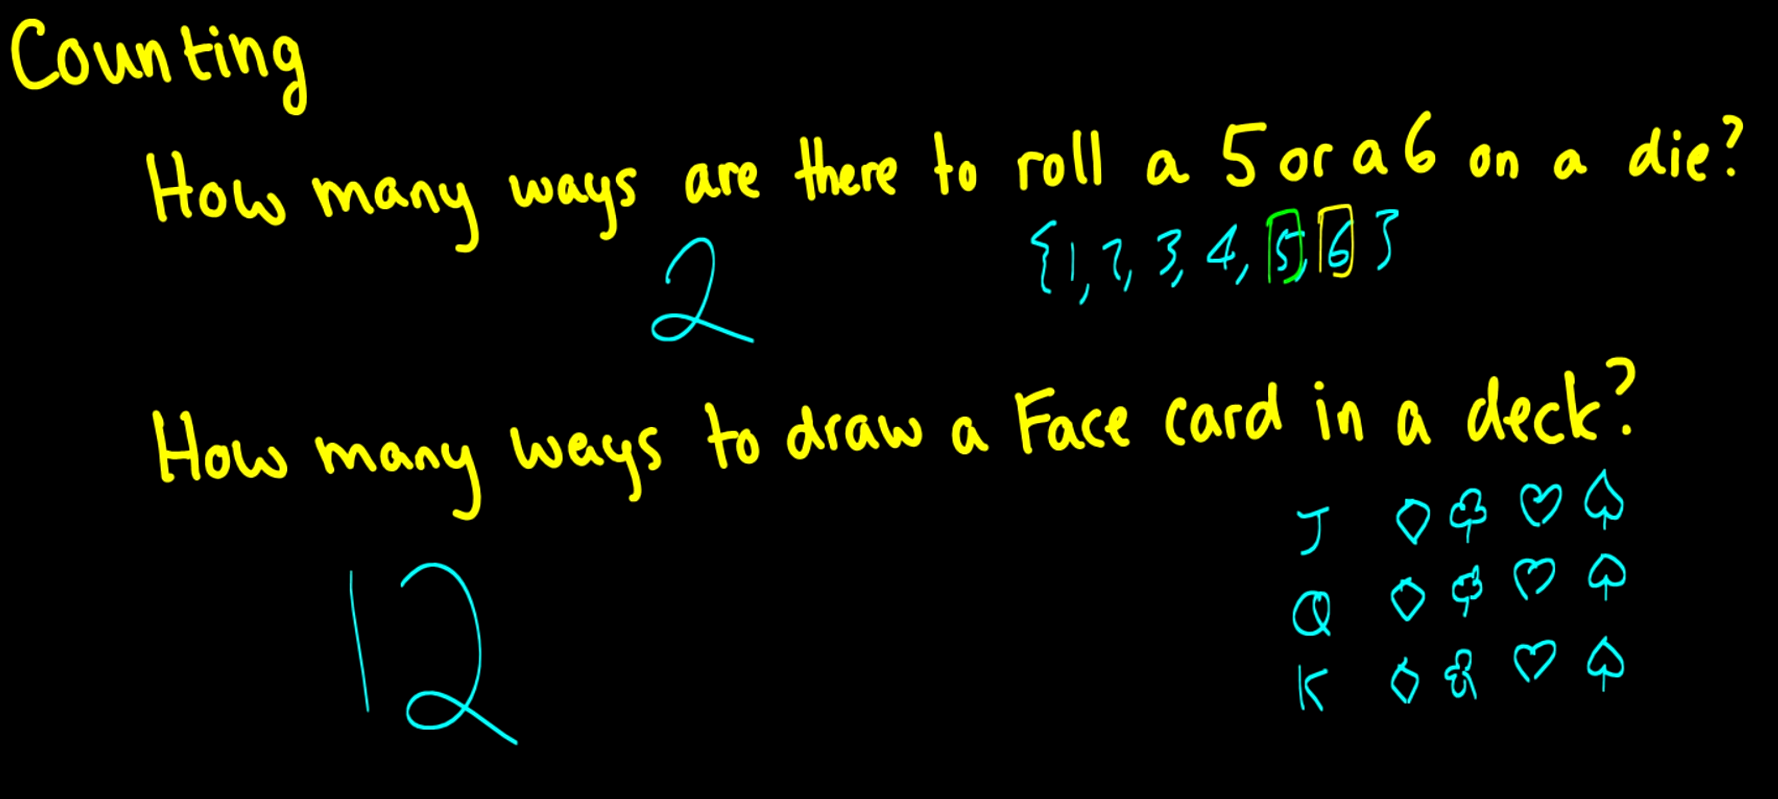 Counting
How many ways are there to roll a 5 or a 6 on a die?
2
{1, 2, 3, 4, 5, 6}
How many ways to draw a Face card in a deck?
12
J ♢ ♧ ♡ ♤
Q ♢ ♧ ♡ ♤
K ♢ ♧ ♡ ♤